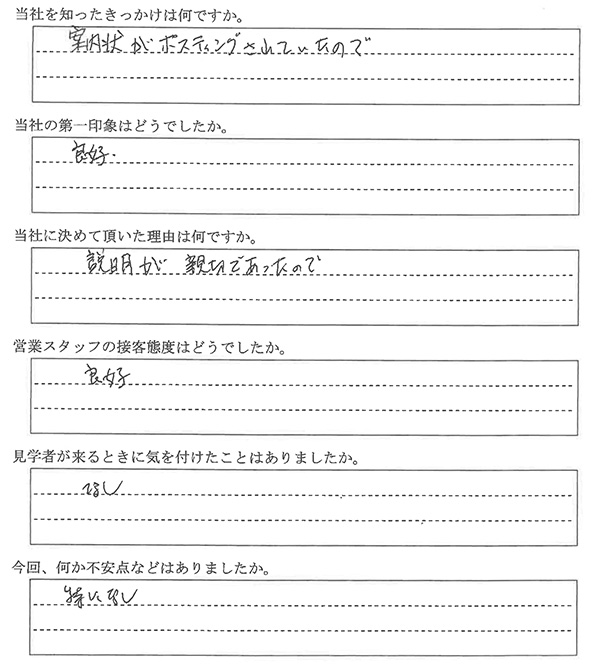 当社を知ったきっかけは何ですか。
案内状がポスティングされていたので
当社の第一印象はどうでしたか。
良好.
当社に決めて頂いた理由は何ですか。
説明が 親切であったので
営業スタッフの接客態度はどうでしたか。
良好
見学者が来るときに気を付けたことはありましたか。
なし
今回、何か不安点などはありましたか。
特になし